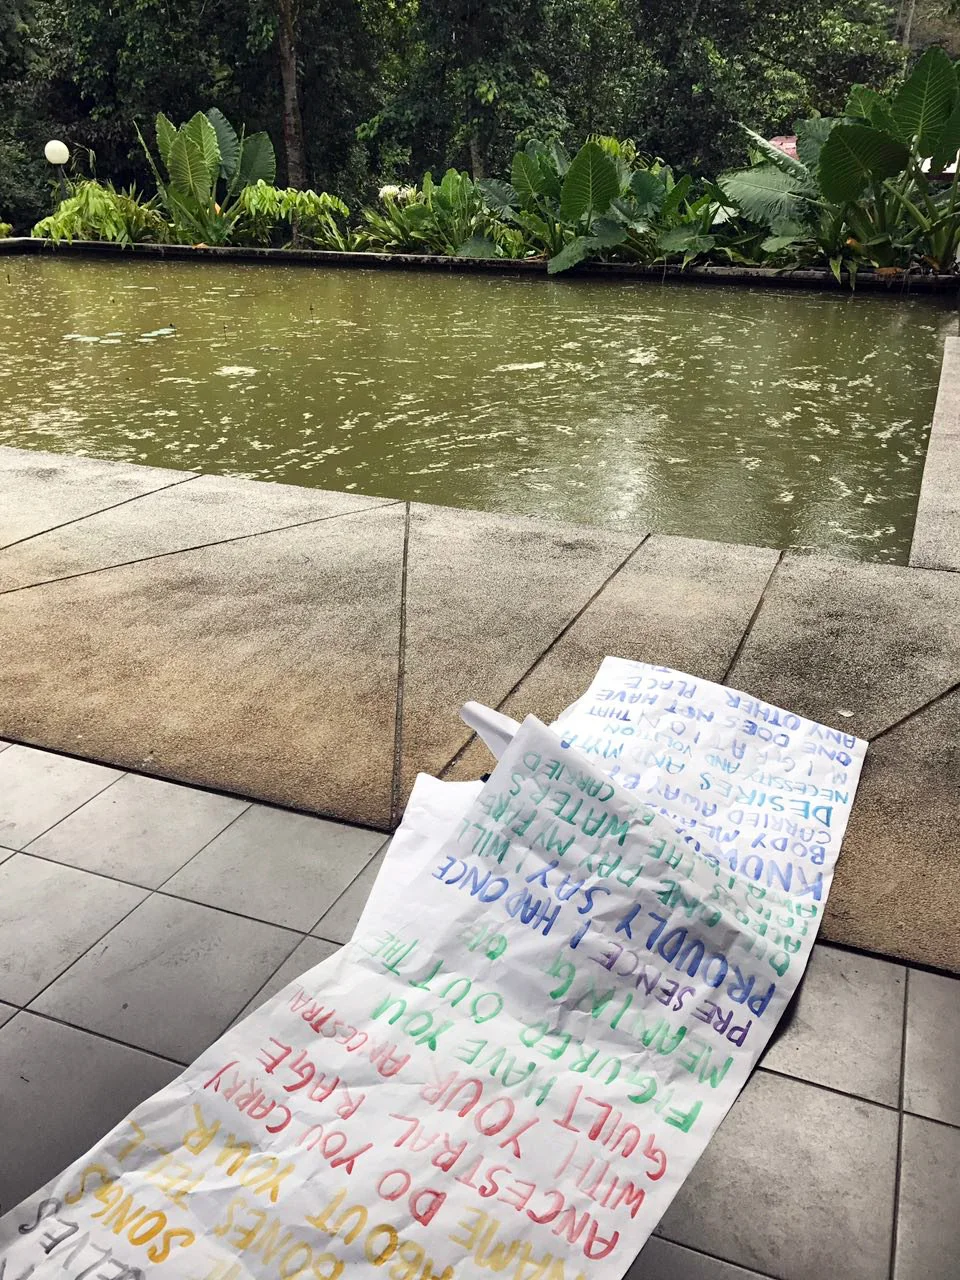 ELVES
SONGS
BONES TELL
ABOUT YOUR
NAME DO YOU CARRY
ANCESTRAL RAGE
WITH YOUR ANCESTRAL
GUILT HAVE YOU
FIGURED OUT THE
MEANING OF
PRESENCE I HAD ONCE
PROUDLY SAY I WILL
ONE PAY MY FARE
ACROSS THE WATERS
CARRIED
BODY
CARRIED AWAY
DESIRES AND MY
NECESSITY AND VOLITION
MIGRATION THAT
ONE DOES NOT HAVE
ANY OTHER PLACE
THE